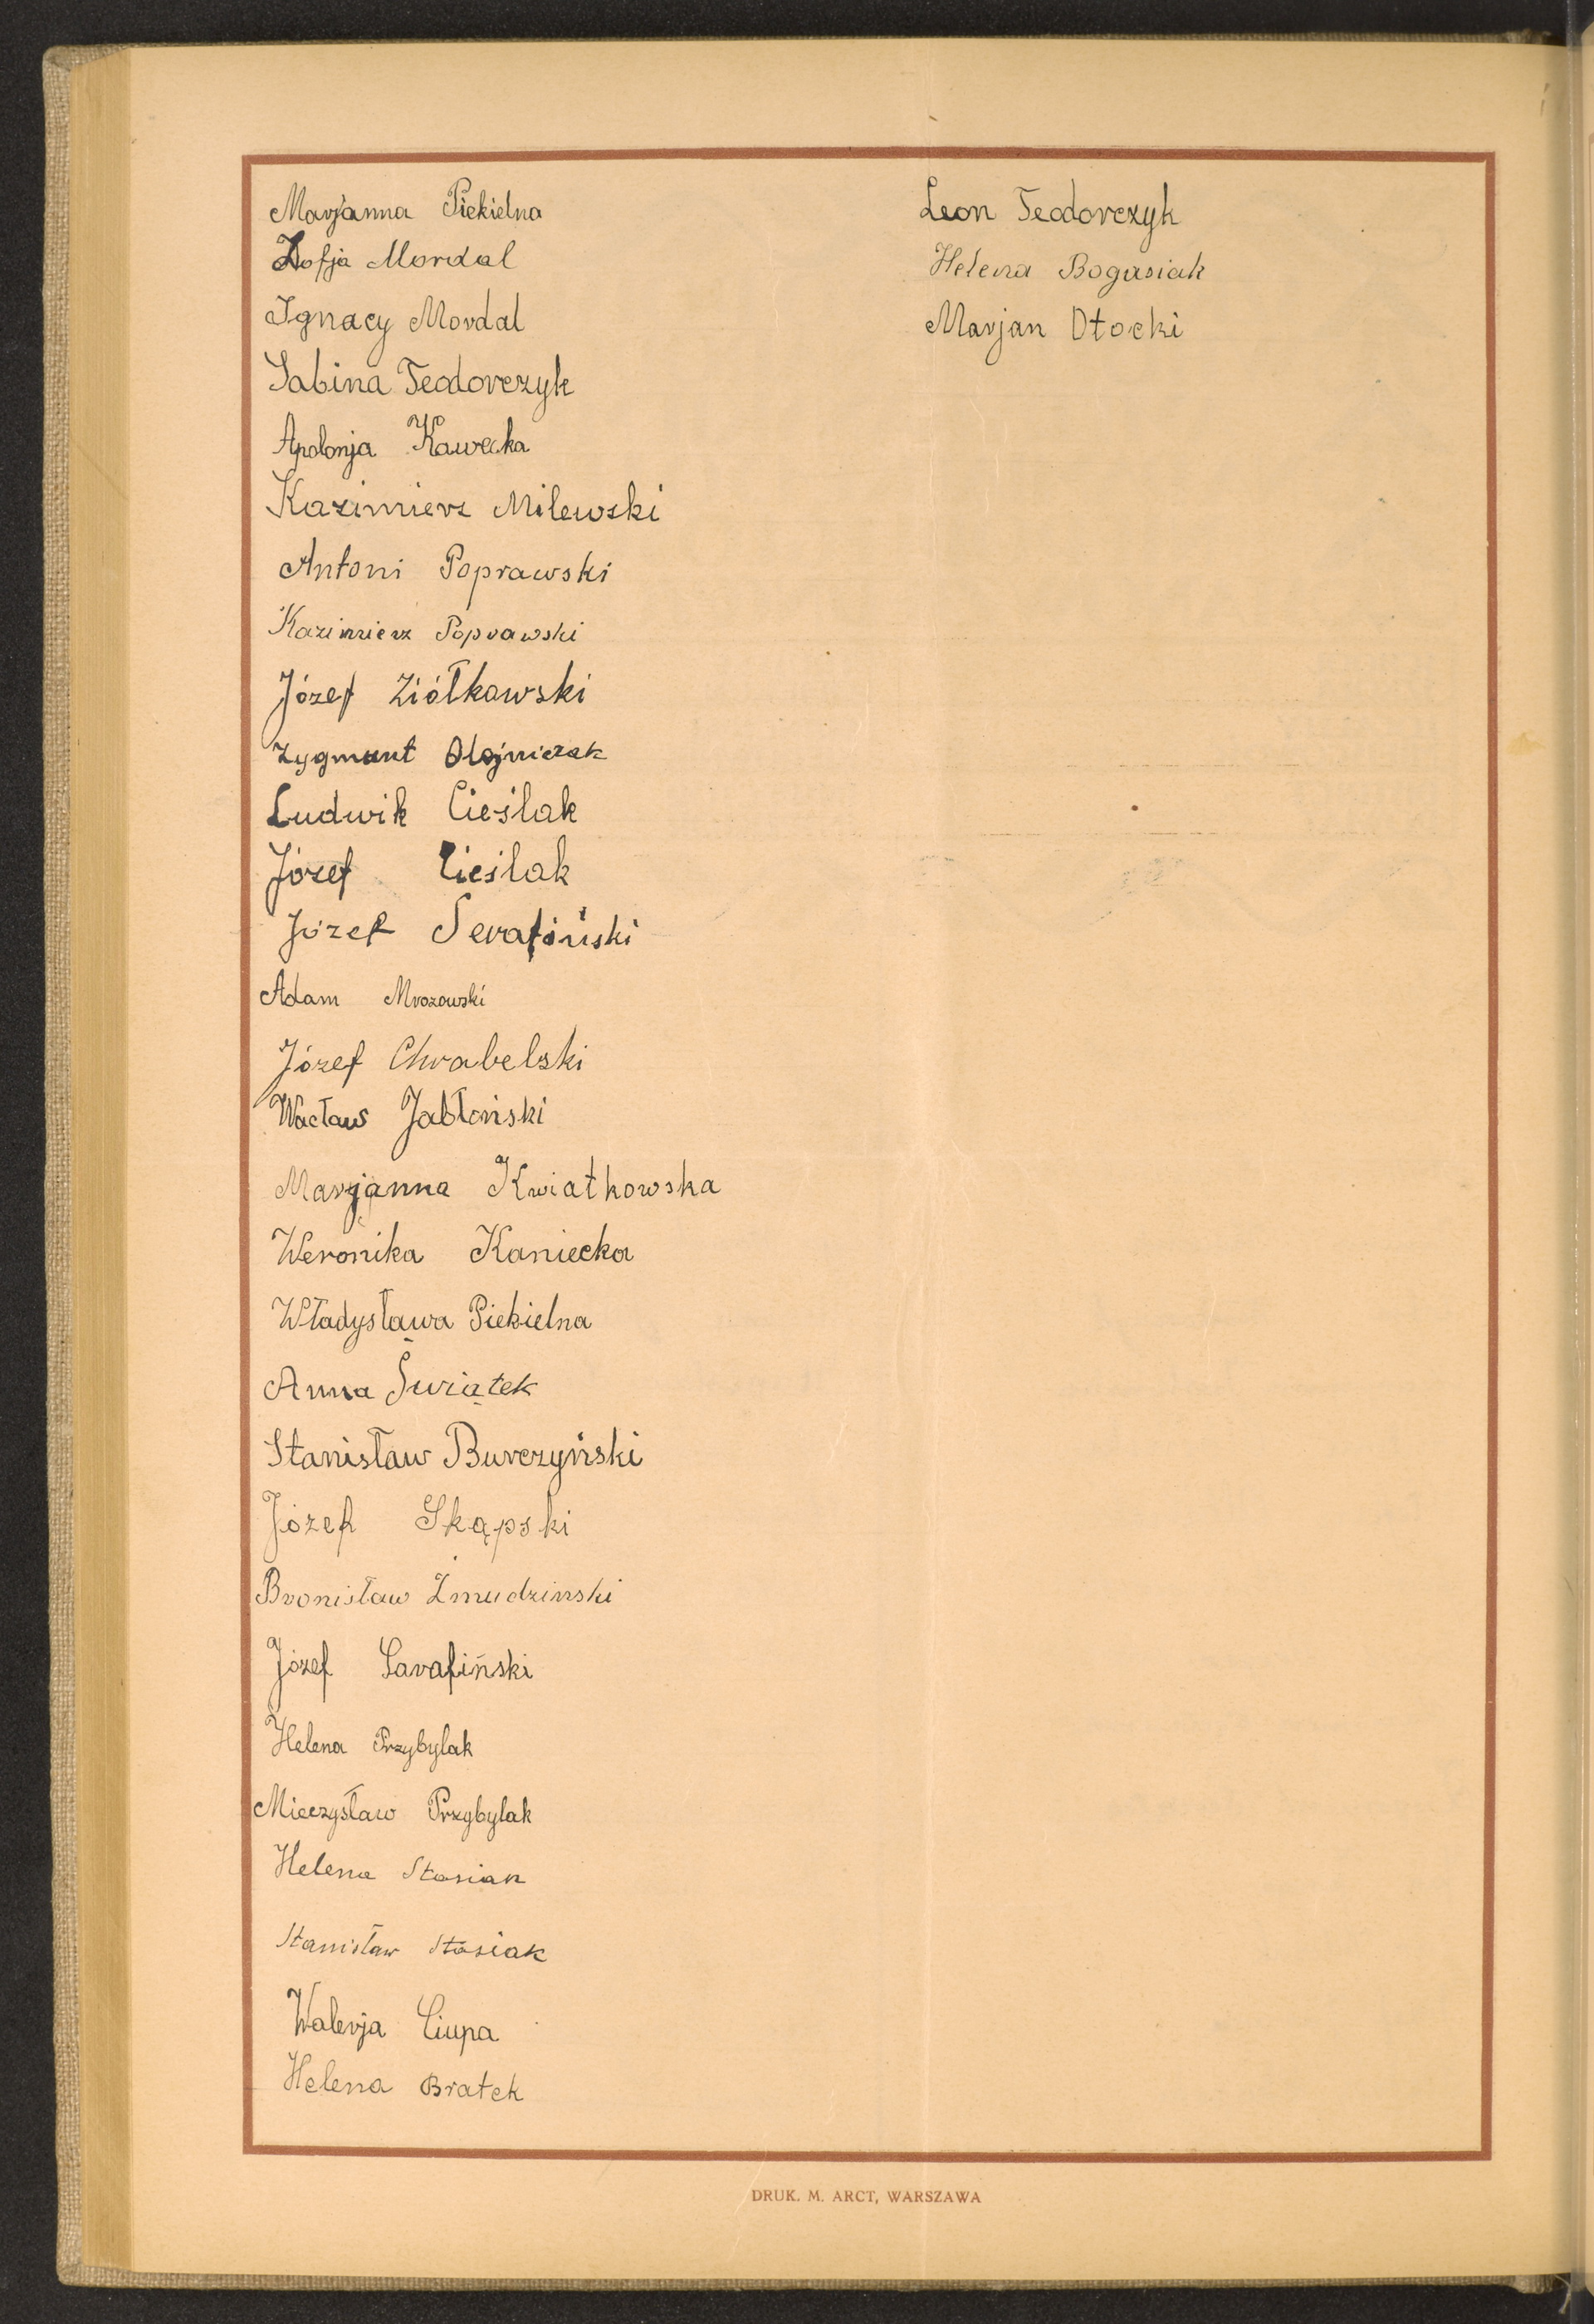 Marjanna Piekielna
Zofja Mordal
Ignacy Mordal
Sabina Teodorczyk
Apolonja Kawecka
Kazimierz Milewski
Antoni Poprawski
Kazimierz Poprawski
Józef Ziółkowski
Zygmunt Olejniczak
Ludwik Cieślak
Józef Cieślak
Józef Serafiński
Adam Mrozowski
Józef Chrabelski
Wacław Jabłoński
Marjanna Kwiatkowska
Weronika Kaniecka
Władysława Piekielna
Anna Świątek
Stanisław Burczyński
Józef Skąpski
Bronisław Żmudzinski
Józef Sarafiński
Helena Przybylak
Mieczysław Przybylak
Helena Stasiak
Stanisław Stasiak
Walerja Ciupa
Helena Bratek
Leon Teodorczyk
Helena Bogusiak
Marjan Otocki
DRUK. M. ARCT, WARSZAWA